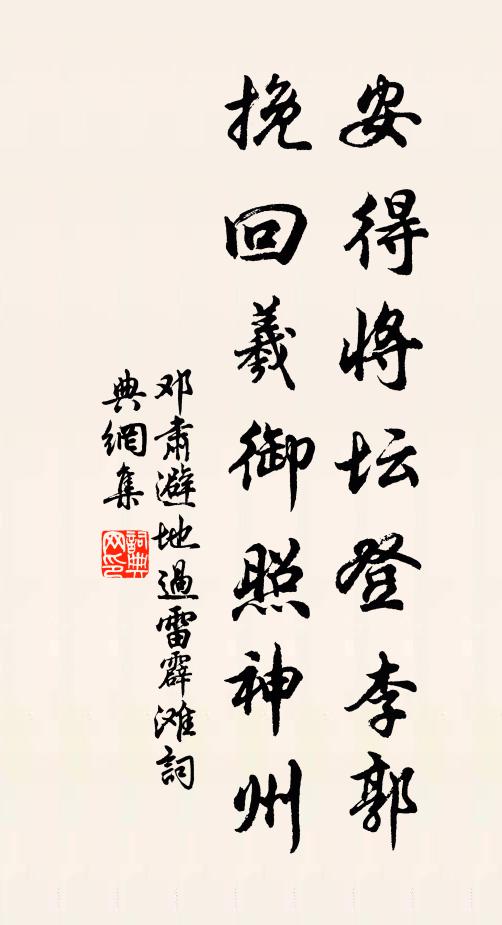 安得将坛登李郭
挽回羲御照神州
邓肃避地過雷霹滩詞
典網集
詞典
网印